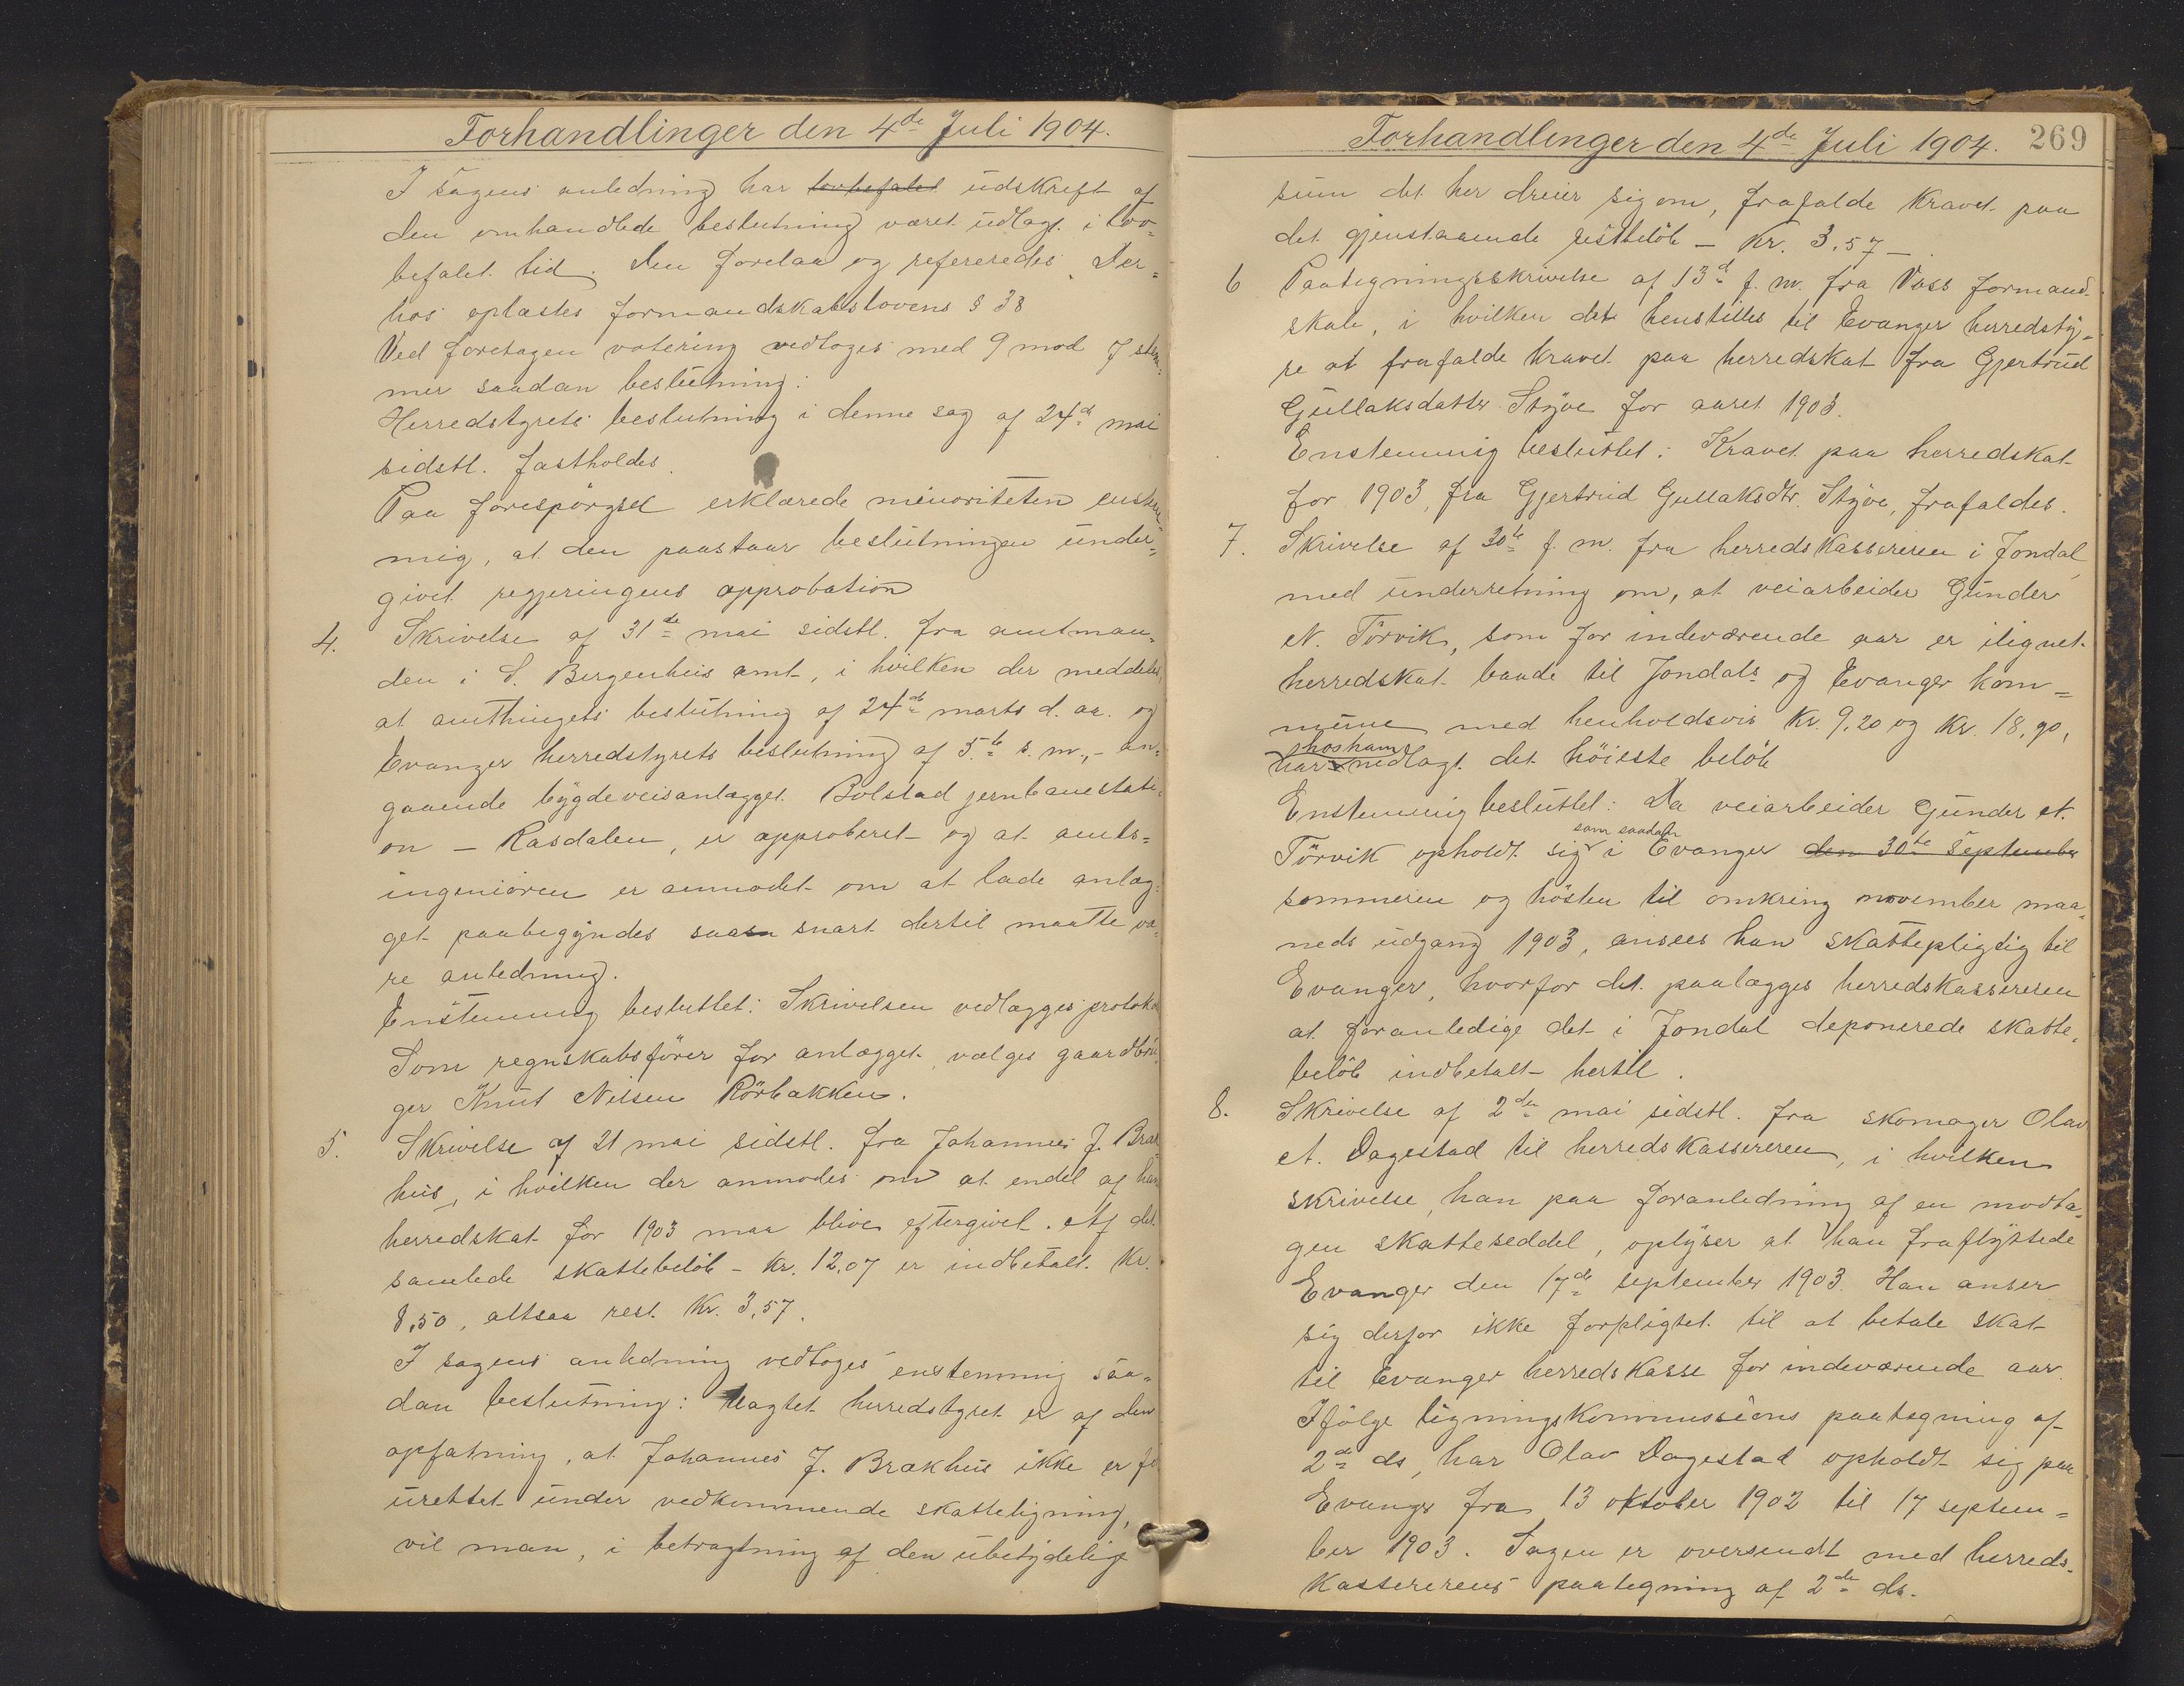 Forhandlinger den 4de Juli 1904.
I sagens anledning har lovbefalet udskrift af
den omhandlede beslutning været udlagt i lov=
befalet tid. Den forelaa og refereredes. Der=
hos oplæstes formandskabslovens § 38
Ved foretagen votering vedtoges med 9 mod 7 stem=
mer saadan beslutning:
Herredstyrets beslutning i denne sag af 24de mai
sidstl. fastholdes.
Paa forespørgsel erklærede minoriteten enstem=
mig, at den paastaar beslutningen under=
givet regjeringens approbation
4. Skrivelse af 31de mai sidstl. fra amtman=
den i S. Bergenhus amt, i hvilken der meddeles,
at amthingets beslutning af 24de marts d. aa. og
Evanger herredstyrets beslutning af 5te s. m., - an=
gaaende bygdeveisanlægget Bolstad jernbanestati=
on — Rasdalen, er approberet og at amts=
ingeniøren er anmodet om at lade anlæg=
get paabegyndes saasn snart dertil maatte væ=
re anledning.
Enstemmig besluttet: Skrivelsen vedlægges protokol
Som regnskabsfører for anlægget vælges gaardbru=
ger Knut Nilsen Rörbakken.
5. Skrivelse af 21 mai sidstl. fra Johannes J. Bræk
hus, i hvilken der anmodes om at endel af hans
herredskat for 1903 maa blive eftergivet. Af det
samlede skattebeløb - Kr. 12,07 er indbetalt Kr.
8,50, altsaa rest Kr. 3,57.
I sagens anledning vedtoges enstemmig saa=
dan beslutning: Uagtet herredstyret er af den
opfatning, at Johannes J. Brækhus ikke er
urettet under vedkommende skatteligning,
vil man, i betragtning af den ubetydelige
Forhandlinger den 4de Juli 1904. 269
sum det her dreier sig om, frafalde kravet paa
det gjenstaaende restbeløb - Kr. 3,57 -.
6 Paategningsskrivelse af 13de f. m. fra Voss formand=
skab, i hvilken det henstilles til Evanger herredsty=
re at frafalde kravet paa herredskat fra Gjertrud
Gullaksdatter Styve for aaret 1903.
Enstemmig besluttet: Kravet paa herredskat
for 1903, fra Gjertrud Gullaksdtr. Styve, frafaldes.
7. Skrivelse af 30te f. m. fra herredskassereren i Jondal,
med underretning om, at veiarbeider Gunder
A. Törvik, som for indeværende aar er ilignet
herredskat baade til Jondals og Evanger kom=
mune med henholdsvis Kr. 9,20 og Kr. 18,90,
hos ham
har nedlagt det höieste belöb
Enstemmig besluttet: Da veiarbeider Gunder A.
som saadan
Törvik opholdt sig i Evanger den 30te September
sommeren og hösten til omkring november maa=
neds udgang 1903, ansees han skattepligtig til
Evanger, hvorfor det paalægges herredskassereren
at foranledige det i Jondal deponerede skatte=
belöb indbetalt hertil.
8. Skrivelse af 2den mai sidstl. fra skomager Olav
A. Dagestad til herredskassereren, i hvilken
skrivelse, han paa foranledning af en modta=
gen skatteseddel, oplyser at han fraflyttede
Evanger den 17de september 1903. Han anser
sig derfor ikke forpligtet til at betale skat
til Evanger herredskasse for indeværende aar.
Ifölge ligningskommissions paategning af
2de ds, har Olav Dagestad opholdt sig paa
Evanger fra 13 oktober 1902 til 17 septem=
ber 1903. Sagen er oversendt med herreds=
kassererens paategning af 2de ds.